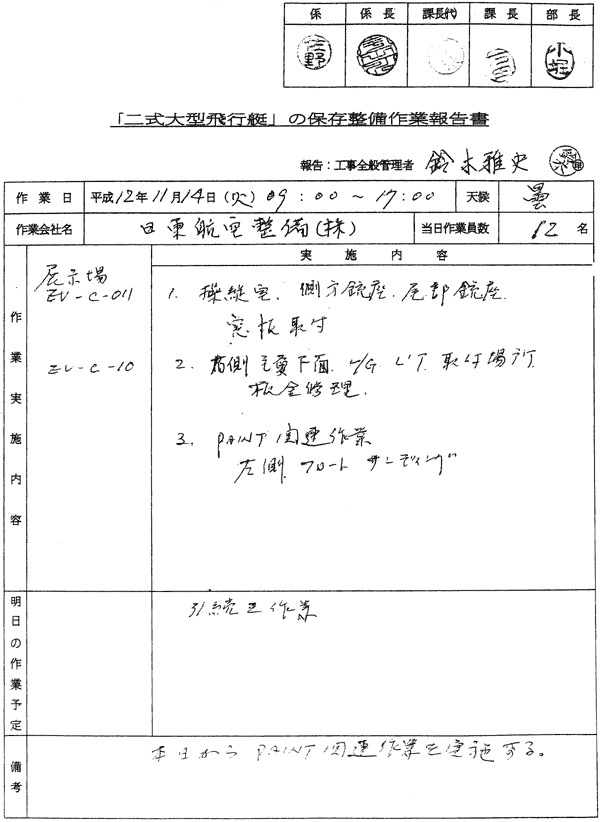 係 係長 課長(代) 課長 部長
「二式大型飛行艇」の保存整備作業報告書
報告：工事全般管理者 鈴木雅史
作業日 平成12年11月14日(火) 09:00～17:00 天候 曇
作業会社名 日東航空整備(株) 当日作業員数 12名
実施内容
作業実施内容
展示場
EV-C-011 1. 操縦室、側方銃座、尾部銃座
窓板取付
EV-C-10 2. 右側主翼下面 L/G L'T 取付場所
板金修理.
3. PAINT関連作業
左側 フロート サンディング
明日の作業予定 引続き作業
備考 本日から PAINT関連作業を実施する。